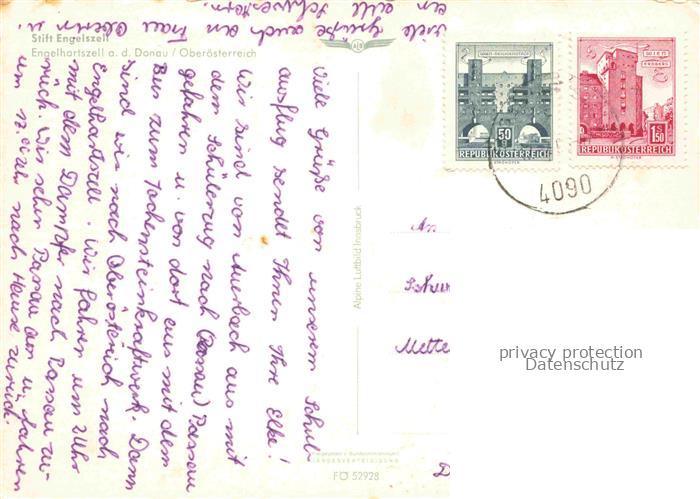 Stift Engelszell
Engelhartszell a. d. Donau / Oberösterreich
Viele Grüße von unserem Schul-
ausflug sendet Ihnen Ihre Elke!
Wir sind von Auerbach aus mit
dem Schülerzug nach (Passau) Passau
gefahren u. von dort aus mit dem
Bus zum Jochensteinkraftwerk. Dann
sind wir nach Oberösterreich nach
Engelhartszell. Wir fahren um Uhr
mit dem Dampfer nach Passau zu-
rück. Wir sehen Passau an u. fahren
um Uhr nach Hause zurück.
Viele Grüße auch an Frau Oberin u.
an alle Schwestern.
Alpine Luftbild Innsbruck
LANDESVERTEIDIGUNG
FÖ 52928
50 g
REPUBLIK ÖSTERREICH
WIEN
ERDBERG
S 1.50
REPUBLIK ÖSTERREICH
4090
An
Schw
Mette
D
privacy protection
Datenschutz